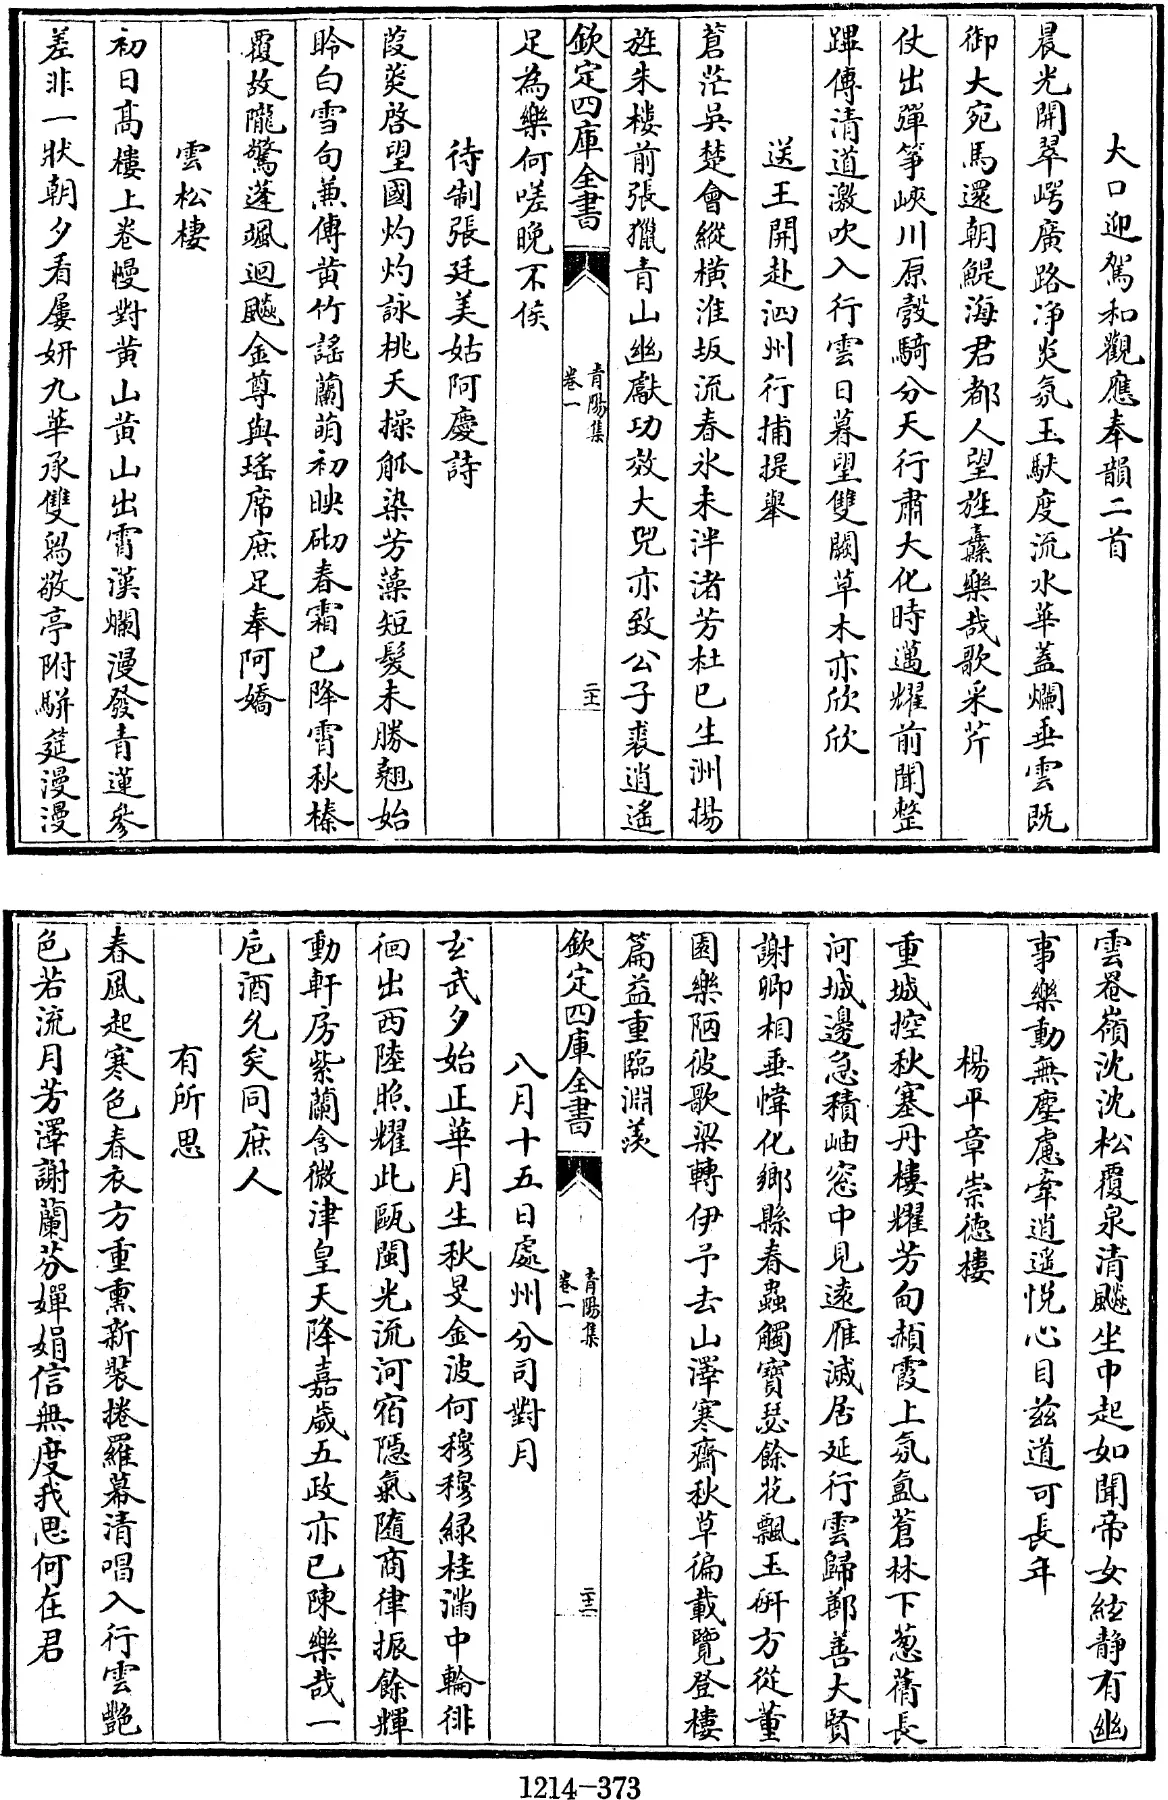 大口迎駕和觀應奉韻二首
晨光開翠崿廣路净炎氛玉馱度流水華蓋爛垂雲既
御大宛馬還朝鯷海君都人望旌纛樂哉歌采芹
仗出彈筝峽川原彀騎分天行肅大化時邁耀前聞整
蹕傳清道激吹入行雲日暮望雙闕草木亦欣欣
送王開赴泗州行捕提舉
蒼茫吳楚會縱橫淮坂流春氷未泮渚芳杜已生洲揚
旌朱樓前張獵青山幽獻功效大兕亦致公子裘逍遙
欽定四庫全書
青陽集
卷一
二十
足為樂何嗟晚不侯
待制張廷美姑阿慶詩
葭莢啓望國灼灼詠桃夭操觚染芳藻短髮未勝翹始
聆白雪句兼傳黄竹謠蘭萌初映砌春霜已降霄秋榛
覆故隴驚蓬颯迴飈金尊與瑤席庶足奉阿嬌
雲松樓
初日髙樓上卷幔對黄山黄山出霄漢爛漫發青蓮參
差非一狀朝夕看屢妍九華承雙舄敬亭附駢筵漫漫
雲卷嶺沈沈松覆泉清飈坐中起如聞帝女絃静有幽
事樂動無塵慮牽逍遥悦心目兹道可長年
楊平章崇德樓
重城控秋塞丹樓耀芳甸頳霞上氛氲蒼林下葱蒨長
河城邊急積岫窓中見遠雁滅居延行雲歸鄯善大賢
謝卿相垂幃化鄉縣春蟲觸寶瑟餘花飄玉硏方從董
園樂陋彼歌梁轉伊予去山澤寒齋秋草徧載覽登樓
篇益重臨淵羨
欽定四庫全書
青陽集
卷一
二十二
八月十五日處州分司對月
𤣥武夕始正華月生秋旻金波何穆穆緑桂滿中輪徘
徊出西陸照耀此甌閩光流河宿隱氣隨商律振餘輝
動軒房紫蘭含微津皇天降嘉歲五政亦已陳樂哉一
巵酒允矣同庶人
有所思
春風起寒色春衣方重熏新裝捲羅幕清唱入行雲艷
色若流月芳澤謝蘭芬嬋娟信無度我思何在君
1214-373